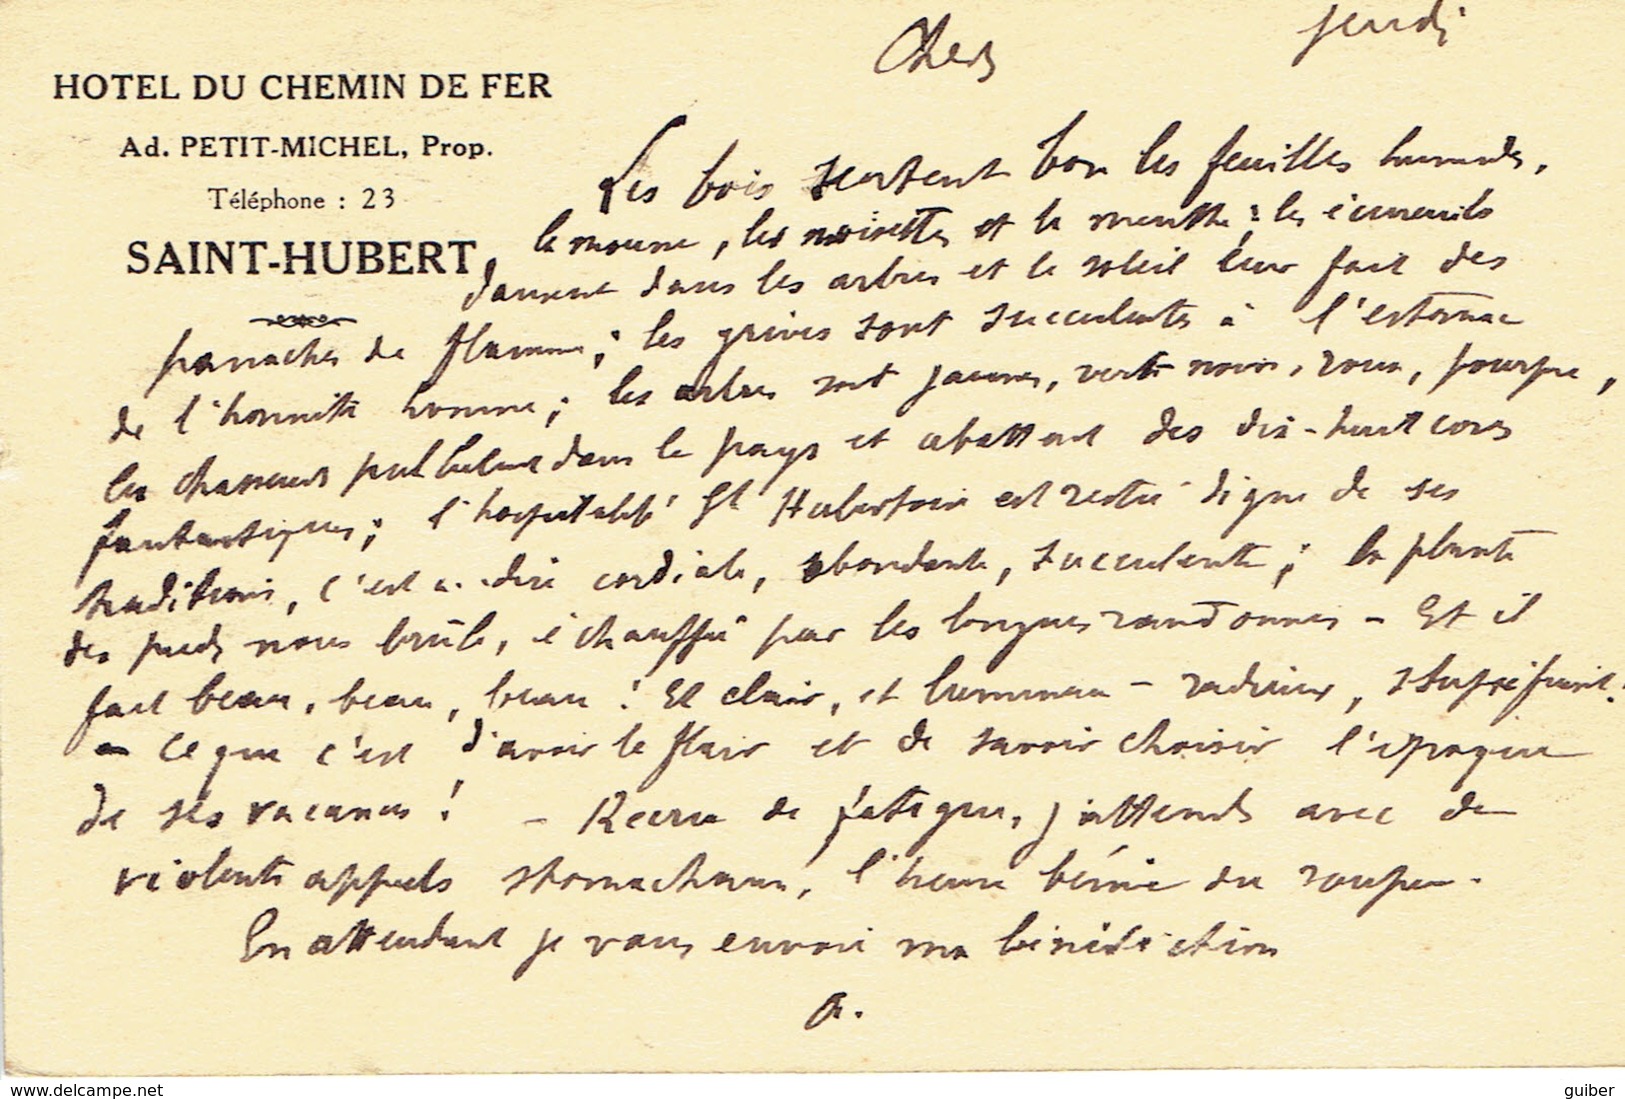 jeudi
Chers
HOTEL DU CHEMIN DE FER
Ad. PETIT-MICHEL, Prop.
Téléphone : 23
SAINT-HUBERT
Les bois sentent bon les feuilles humides,
la mousse, les noisettes et la menthe ; les écureuils
dansent dans les arbres et le soleil leur fait des
panaches de flamme ; les grives sont succulentes à l'estomac
de l'honnête homme ; les arbres sont jaunes, verts noirs, roux, pourpre,
les chasseurs pullulent dans le pays et abattent des dix-huit cors
fantastiques ; l'hospitalité St Hubertoise est restée digne de ses
traditions, c'est à dire cordiale, abondante, succulente ; la plante
des pieds nous brûle, échauffée par les longues randonnées - Et il
fait beau, beau, beau ! Et clair, et lumineux - radieux, stupéfiant.
- Ce que c'est d'avoir le flair et de savoir choisir l'époque
de ses vacances ! - Recru de fatigue, j'attends avec de
violents appels stomachaux, l'heure bénie du souper.
En attendant je vous envoie ma bénédiction
A.
www.delcampe.net
guiber